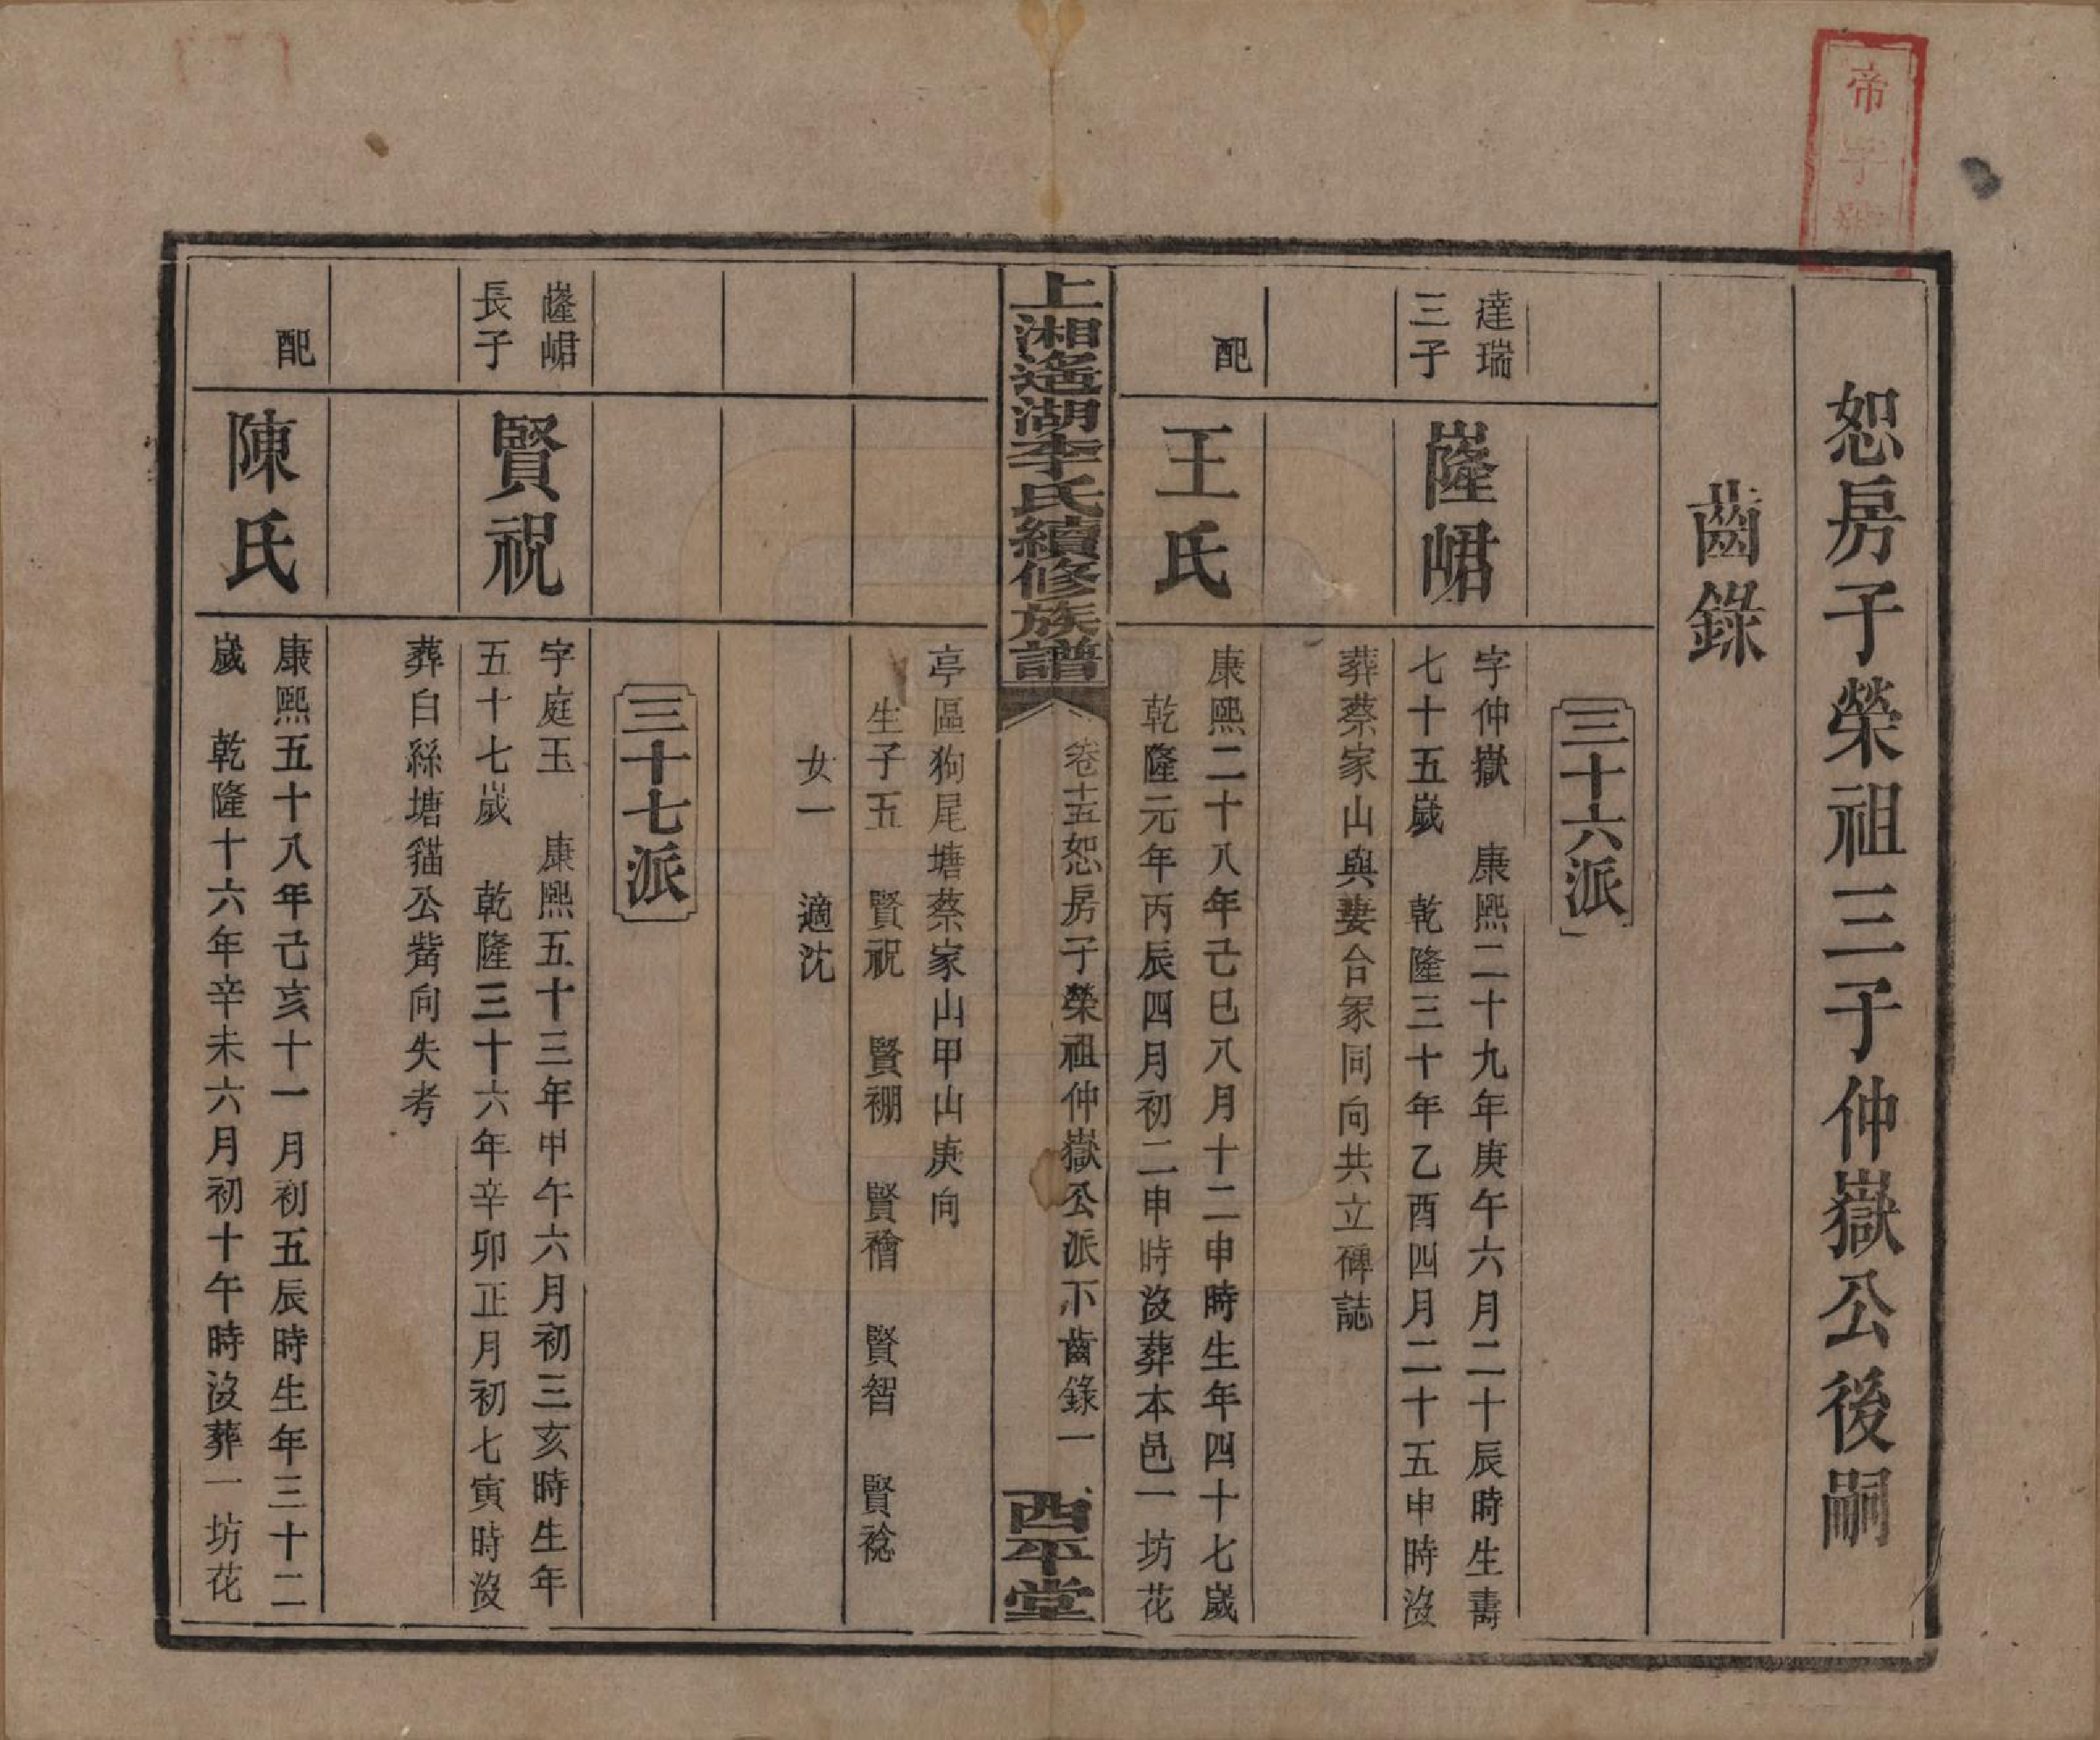 帝字號
恕房子榮祖三子仲嶽公後嗣
齒錄
三十六派
達瑞
三子
嶐峮
字仲嶽 康熙二十九年庚午六月二十辰時生壽
七十五歲 乾隆三十年乙酉四月二十五申時沒
葬蔡家山與妻合冢同向共立碑誌
配
王氏
康熙二十八年己巳八月十二申時生年四十七歲
乾隆元年丙辰四月初二申時沒葬本邑一坊花
上湘遙湖李氏續修族譜
卷十五恕房子榮祖仲嶽公派下齒錄一
西平堂
亭區狗尾塘蔡家山甲山庚向
生子五 賢祝 賢棚 賢禬 賢智 賢稔
女一 適沈
三十七派
嶐峮
長子
賢祝
字庭玉 康熙五十三年甲午六月初三亥時生年
五十七歲 乾隆三十六年辛卯正月初七寅時沒
葬白絲塘貓公觜向失考
配
陳氏
康熙五十八年己亥十一月初五辰時生年三十二
歲 乾隆十六年辛未六月初十午時沒葬一坊花